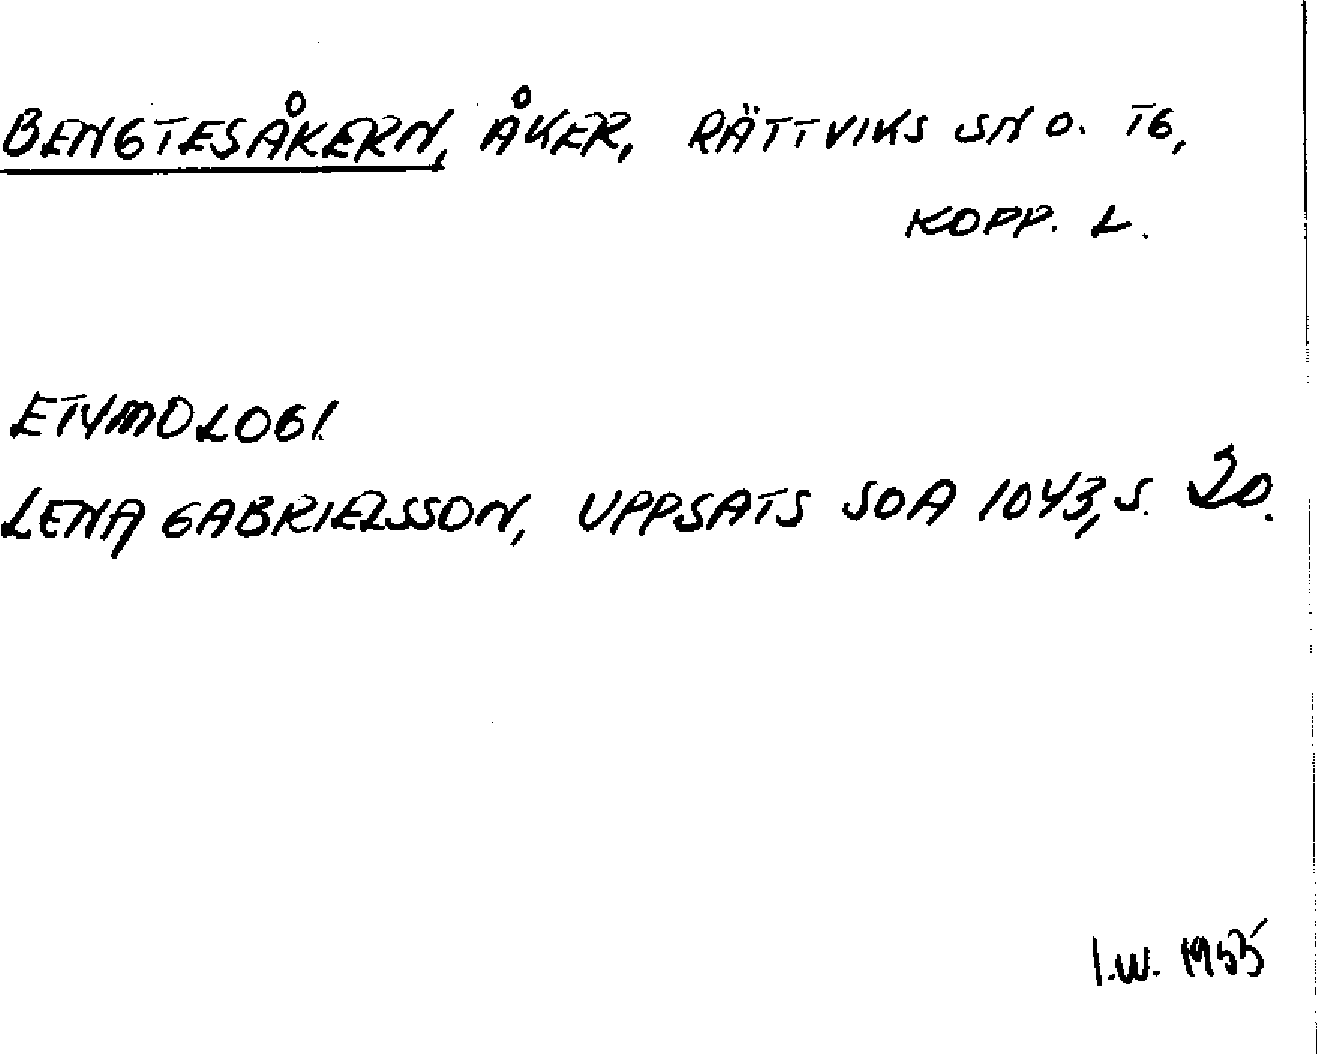 BENGTESÅKERN, ÅKER, RÄTTVIKS SN O. TG,
KOPP. L.
ETYMOLOGI
LENA GABRIELSSON, UPPSATS SOA 1043, S. 20.
I.W. 1955